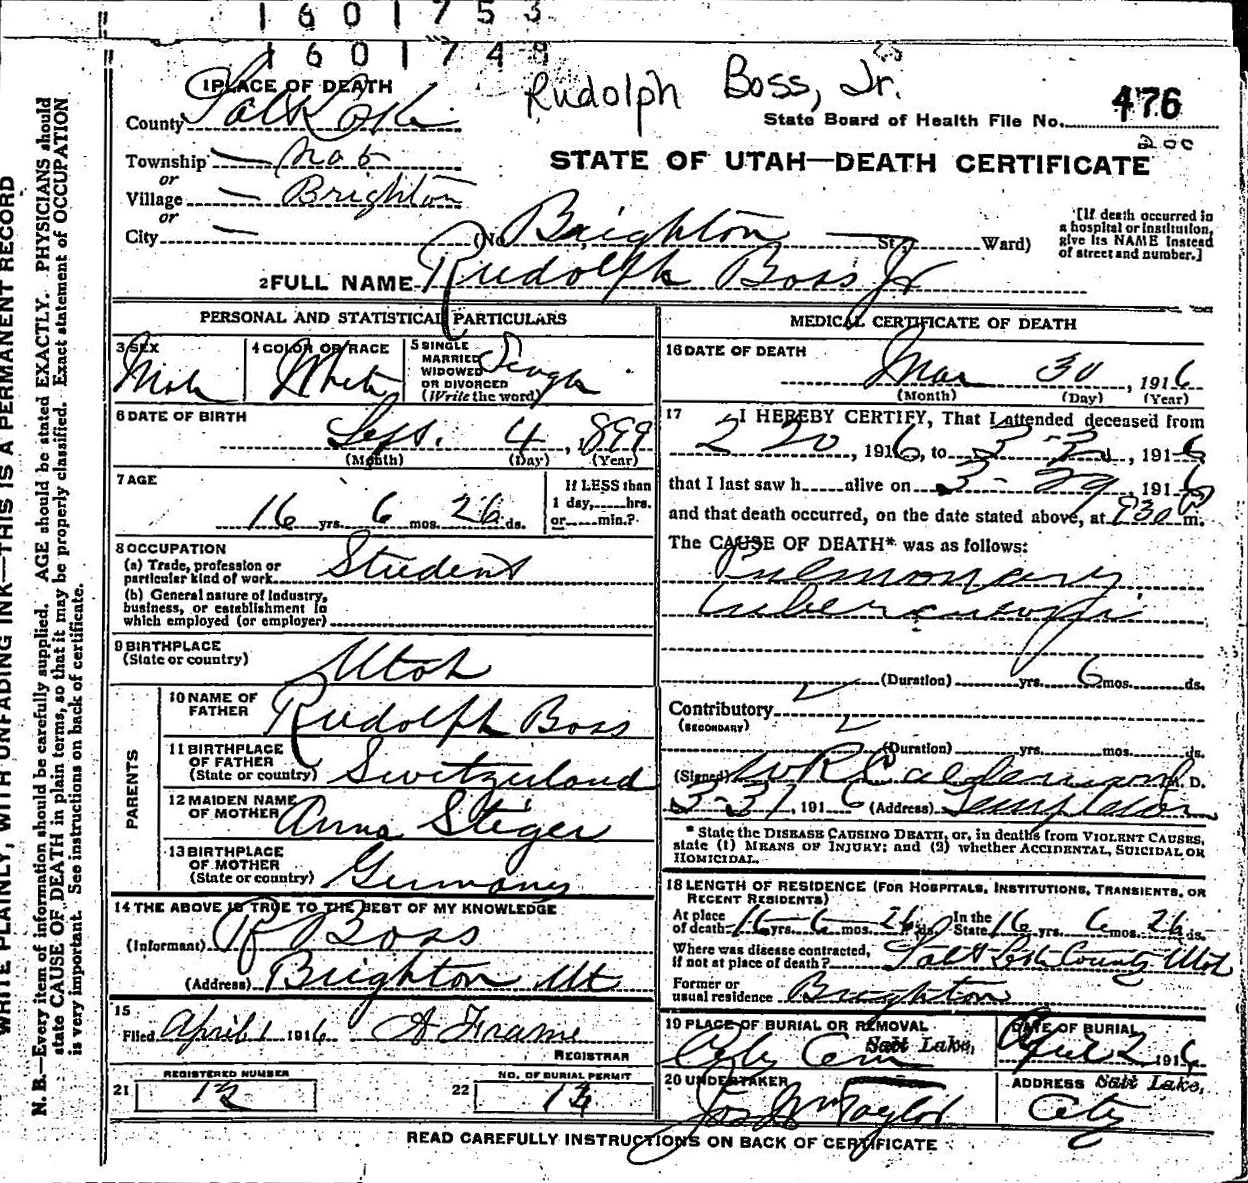 1601753
1601749
Rudolph Boss, Jr.
476
State Board of Health File No.
200
1 PLACE OF DEATH
County Salt Lake
Township — No 6
or
Village — Brighton
or
City —
STATE OF UTAH—DEATH CERTIFICATE
(No. Brighton — St., Ward)
[If death occurred in
a hospital or institution,
give its NAME instead
of street and number.]
2 FULL NAME Rudolph Boss Jr
PERSONAL AND STATISTICAL PARTICULARS
3 SEX Male
4 COLOR OR RACE White
5 SINGLE
MARRIED
WIDOWED
OR DIVORCED
(Write the word) Single
6 DATE OF BIRTH
Sept. 4, 1899
(Month) (Day) (Year)
7 AGE
16 yrs. 6 mos. 26 ds.
If LESS than
1 day,......hrs.
or......min.?
8 OCCUPATION
(a) Trade, profession or
particular kind of work Student
(b) General nature of industry,
business, or establishment in
which employed (or employer)
9 BIRTHPLACE
(State or country) Utah
PARENTS
10 NAME OF
FATHER Rudolph Boss
11 BIRTHPLACE
OF FATHER
(State or country) Switzerland
12 MAIDEN NAME
OF MOTHER Anna Steger
13 BIRTHPLACE
OF MOTHER
(State or country) Germany
14 THE ABOVE IS TRUE TO THE BEST OF MY KNOWLEDGE
(Informant) R Boss
(Address) Brighton Ut
15
Filed April 1 1916 A Frame
REGISTRAR
21 REGISTERED NUMBER
13
22 NO. OF BURIAL PERMIT
13
MEDICAL CERTIFICATE OF DEATH
16 DATE OF DEATH
Mar 30, 1916
(Month) (Day) (Year)
17 I HEREBY CERTIFY, That I attended deceased from
2 20, 1916, to 3-, 1916
that I last saw h alive on 3-29, 1916
and that death occurred, on the date stated above, at 830 P m.
The CAUSE OF DEATH* was as follows:
Pulmonary
tuberculosis
(Duration) yrs. 6 mos. ds.
Contributory
(SECONDARY)
(Duration) yrs. mos. ds.
(Signed) W R Calderwood M. D.
3-31, 1916 (Address) Templeton
* State the DISEASE CAUSING DEATH, or, in deaths from VIOLENT CAUSES,
state (1) MEANS OF INJURY; and (2) whether ACCIDENTAL, SUICIDAL OR
HOMICIDAL.
18 LENGTH OF RESIDENCE (FOR HOSPITALS, INSTITUTIONS, TRANSIENTS, OR
RECENT RESIDENTS)
At place
of death 16 yrs. 6 mos. 26 ds.
In the
State 16 yrs. 6 mos. 26 ds.
Where was disease contracted,
if not at place of death? Salt Lake County Utah
Former or
usual residence Brighton
19 PLACE OF BURIAL OR REMOVAL
City Cem Salt Lake,
DATE OF BURIAL
April 2 1916
20 UNDERTAKER
Jos Wm Taylor
ADDRESS Salt Lake,
City
READ CAREFULLY INSTRUCTIONS ON BACK OF CERTIFICATE
WRITE PLAINLY, WITH UNFADING INK—THIS IS A PERMANENT RECORD
N. B.—Every item of information should be carefully supplied. AGE should be stated EXACTLY. PHYSICIANS should
state CAUSE OF DEATH in plain terms, so that it may be properly classified. Exact statement of OCCUPATION
is very important. See instructions on back of certificate.